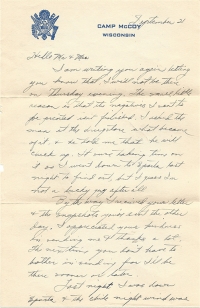 CAMP McCOY
WISCONSIN
September 21
Hello Mr & Mrs
I am writing you again letting
you know that I will not be there
on Thursday coming. The
reason is that the negatives I want to
be greated not finished. I asked the
man at the drugstore what became
of it & he told me that he will
check up. I was taking time on
it so I went down to Sparta last
night to find out, but I guess I'm
not a lucky guy after all.
By the way I received your letter
& the snapshots you sent the other
day. I appreciated your kindness
by sending me & thanks a lot.
you don't have to
bother in sending for I'll be
there sooner or later.
Last night I was down
Sparta & the whole night wind was